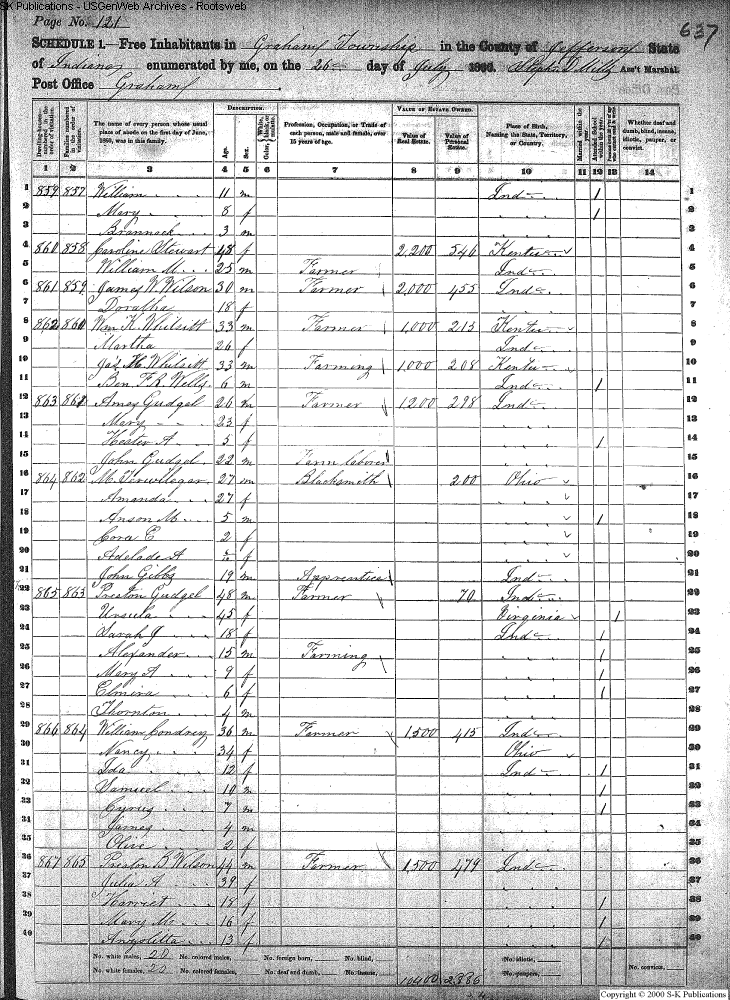 S-K Publications - USGenWeb Archives - Rootsweb
Page No. 121
637
SCHEDULE 1.—Free Inhabitants in Graham Township in the County of Jefferson State
of Indiana enumerated by me, on the 26 day of July 1860. Ass't Marshal.
Post Office Graham
DESCRIPTION. VALUE OF ESTATE OWNED.
Dwelling-houses—numbered in the order of visitation. Families numbered in the order of visitation. The name of every person whose usual place of abode on the first day of June, 1860, was in this family. Age. Sex. Color, White, black, or mulatto. Profession, Occupation, or Trade of each person, male and female, over 15 years of age. Value of Real Estate. Value of Personal Estate. Place of Birth, Naming the State, Territory, or Country. Married within the year. Attended School within the year. Whether deaf and dumb, blind, insane, idiotic, pauper, or convict.
1 2 3 4 5 6 7 8 9 10 11 12 13 14
1 859 857 William 11 m Ind 1 1
2 Mary 8 f 1 2
3 Brannock 3 m 3
4 860 858 Caroline Stewart 48 f 2,200 546 Kentu 4
5 William M. 25 m Farmer Ind 5
6 861 859 James W Wilson 30 m Farmer 2,000 455 Ind 6
7 Doratha 18 f 7
8 862 860 Wm K. Whitsitt 33 m Farmer 1,000 215 Kentu 8
9 Martha 26 f Ind 9
10 Jas M Whitsitt 33 m Farming 1,000 208 Kentu 10
11 Ben F. R. Wells 6 m Ind 1 11
12 863 861 Amos Gudgel 26 m Farmer 1200 298 Ind 12
13 Mary 23 f 13
14 Hester A 5 f 1 14
15 John Gudgel 22 m Farm laborer 15
16 864 862 M. Terwillegar 27 m Blacksmith 200 Ohio 16
17 Amanda 27 f 17
18 Anson M 5 m 1 18
19 Cora E 2 f 19
20 Adelade A f 20
21 John Gibbs 19 m Apprentice Ind 21
22 865 863 Preston Gudgel 48 m Farmer 70 Ind 22
23 Ursula 45 f Virginia 1 23
24 Sarah J 18 f Ind 1 24
25 Alexander 15 m Farming 1 25
26 Mary A 9 f 1 26
27 Elmira 6 f 1 27
28 Thornton 4 m 28
29 866 864 William Condrey 36 m Farmer 1,500 415 Ind 29
30 Nancy 34 f Ohio 30
31 Ida 12 f Ind 1 31
32 Samuel 10 m 1 32
33 Cyrus 7 m 1 33
34 James 4 m 34
35 Olive 2 f 35
36 867 865 Preston B Wilson 44 m Farmer 1,500 479 Ind 36
37 Julia A 39 f 37
38 Harriet 18 f 1 38
39 Mary M 16 f 1 39
40 Angolitta 13 f 1 40
No. white males, 20 No. colored males, No. foreign born, No. blind, No. idiotic,
No. white females, No. colored females, No. deaf and dumb, No. insane, 10400 2,886 No. paupers, No. convicts,
Copyright © 2000 S-K Publications